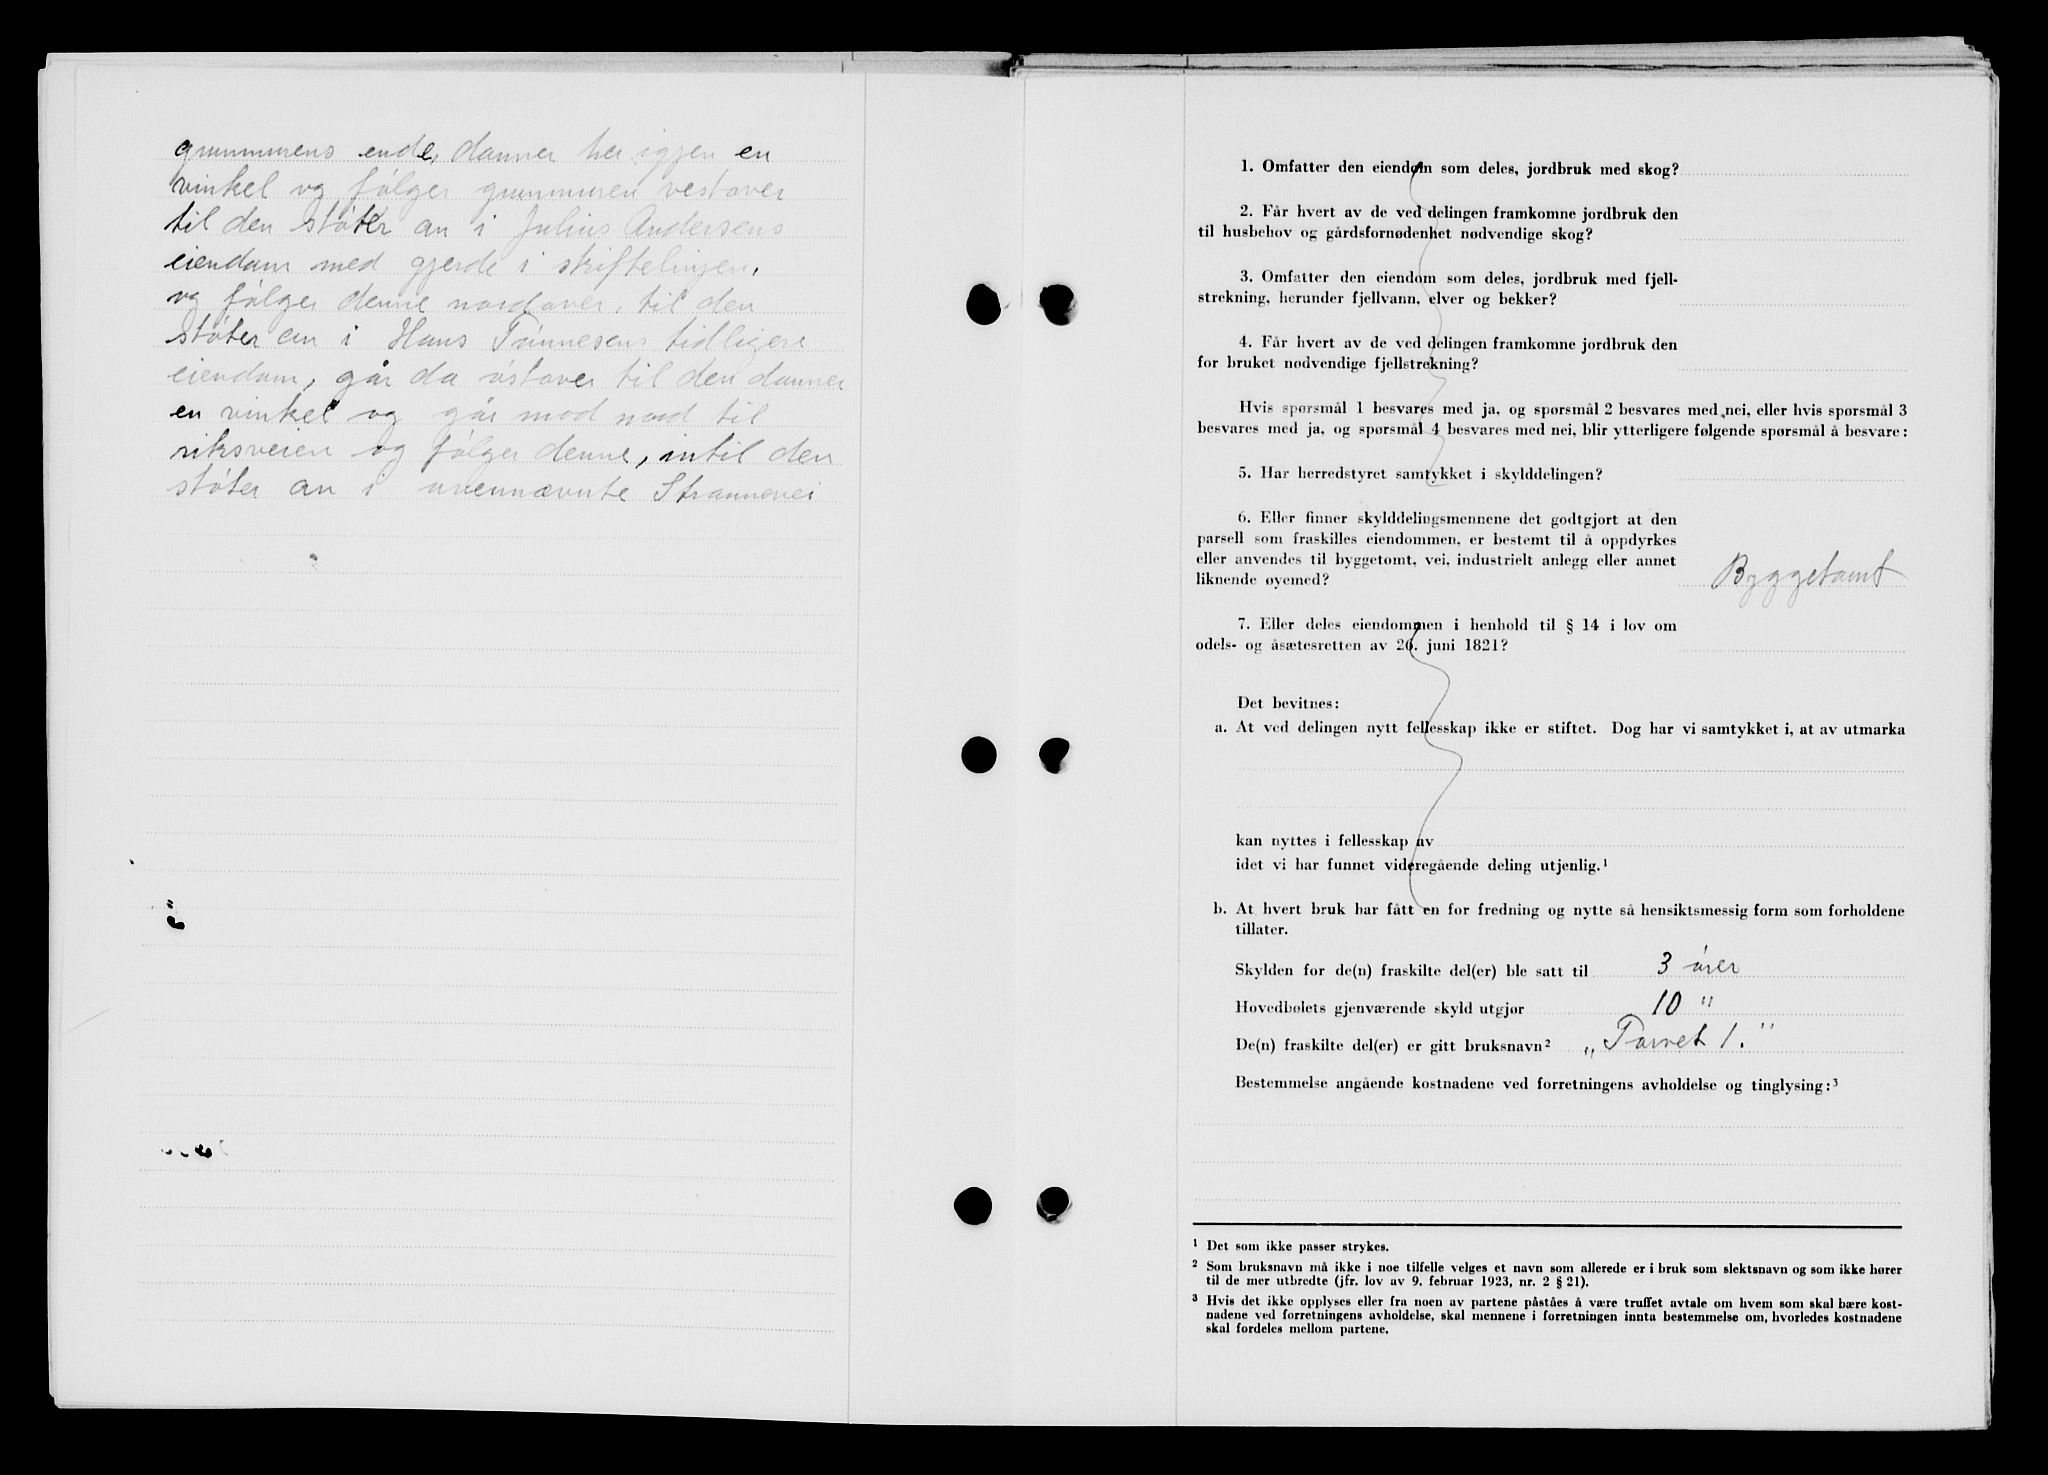 grunnmurens ende, danner her igjen en
vinkel og følger grunmuren vestover
til den støter an i Julius Andersens
eiendom med gjerde i skiftelinjen,
og følger denne nordover, til den
støter an i Hans Tønnesens tidligere
eiendom, går da østover til den danner
en vinkel og går mod nord til
riksveien og følger denne, intil den
støter an i ovennævnte Strannevei
1. Omfatter den eiendom som deles, jordbruk med skog?
2. Får hvert av de ved delingen framkomne jordbruk den
til husbehov og gårdsfornødenhet nødvendige skog?
3. Omfatter den eiendom som deles, jordbruk med fjell-
strekning, herunder fjellvann, elver og bekker?
4. Får hvert av de ved delingen framkomne jordbruk den
for bruket nødvendige fjellstrekning?
Hvis spørsmål 1 besvares med ja, og spørsmål 2 besvares med nei, eller hvis spørsmål 3
besvares med ja, og spørsmål 4 besvares med nei, blir ytterligere følgende spørsmål å besvare:
5. Har herredstyret samtykket i skylddelingen?
6. Eller finner skylddelingsmennene det godtgjort at den
parsell som fraskilles eiendommen, er bestemt til å oppdyrkes
eller anvendes til byggetomt, vei, industrielt anlegg eller annet
liknende øyemed? Byggetomt
7. Eller deles eiendommen i henhold til § 14 i lov om
odels- og åsætesretten av 26. juni 1821?
Det bevitnes:
a. At ved delingen nytt fellesskap ikke er stiftet. Dog har vi samtykket i, at av utmarka
kan nyttes i fellesskap av
idet vi har funnet videregående deling utjenlig.¹
b. At hvert bruk har fått en for fredning og nytte så hensiktsmessig form som forholdene
tillater.
Skylden for de(n) fraskilte del(er) ble satt til 3 ører
Hovedbølets gjenværende skyld utgjør 10 "
De(n) fraskilte del(er) er gitt bruksnavn² „Torvet 1."
Bestemmelse angående kostnadene ved forretningens avholdelse og tinglysing:³
¹ Det som ikke passer strykes.
² Som bruksnavn må ikke i noe tilfelle velges et navn som allerede er i bruk som slektsnavn og som ikke hører
til de mer utbredte (jfr. lov av 9. februar 1923, nr. 2 § 21).
³ Hvis det ikke opplyses eller fra noen av partene påståes å være truffet avtale om hvem som skal bære kost-
nadene ved forretningens avholdelse, skal mennene i forretningen innta bestemmelse om, hvorledes kostnadene
skal fordeles mellom partene.